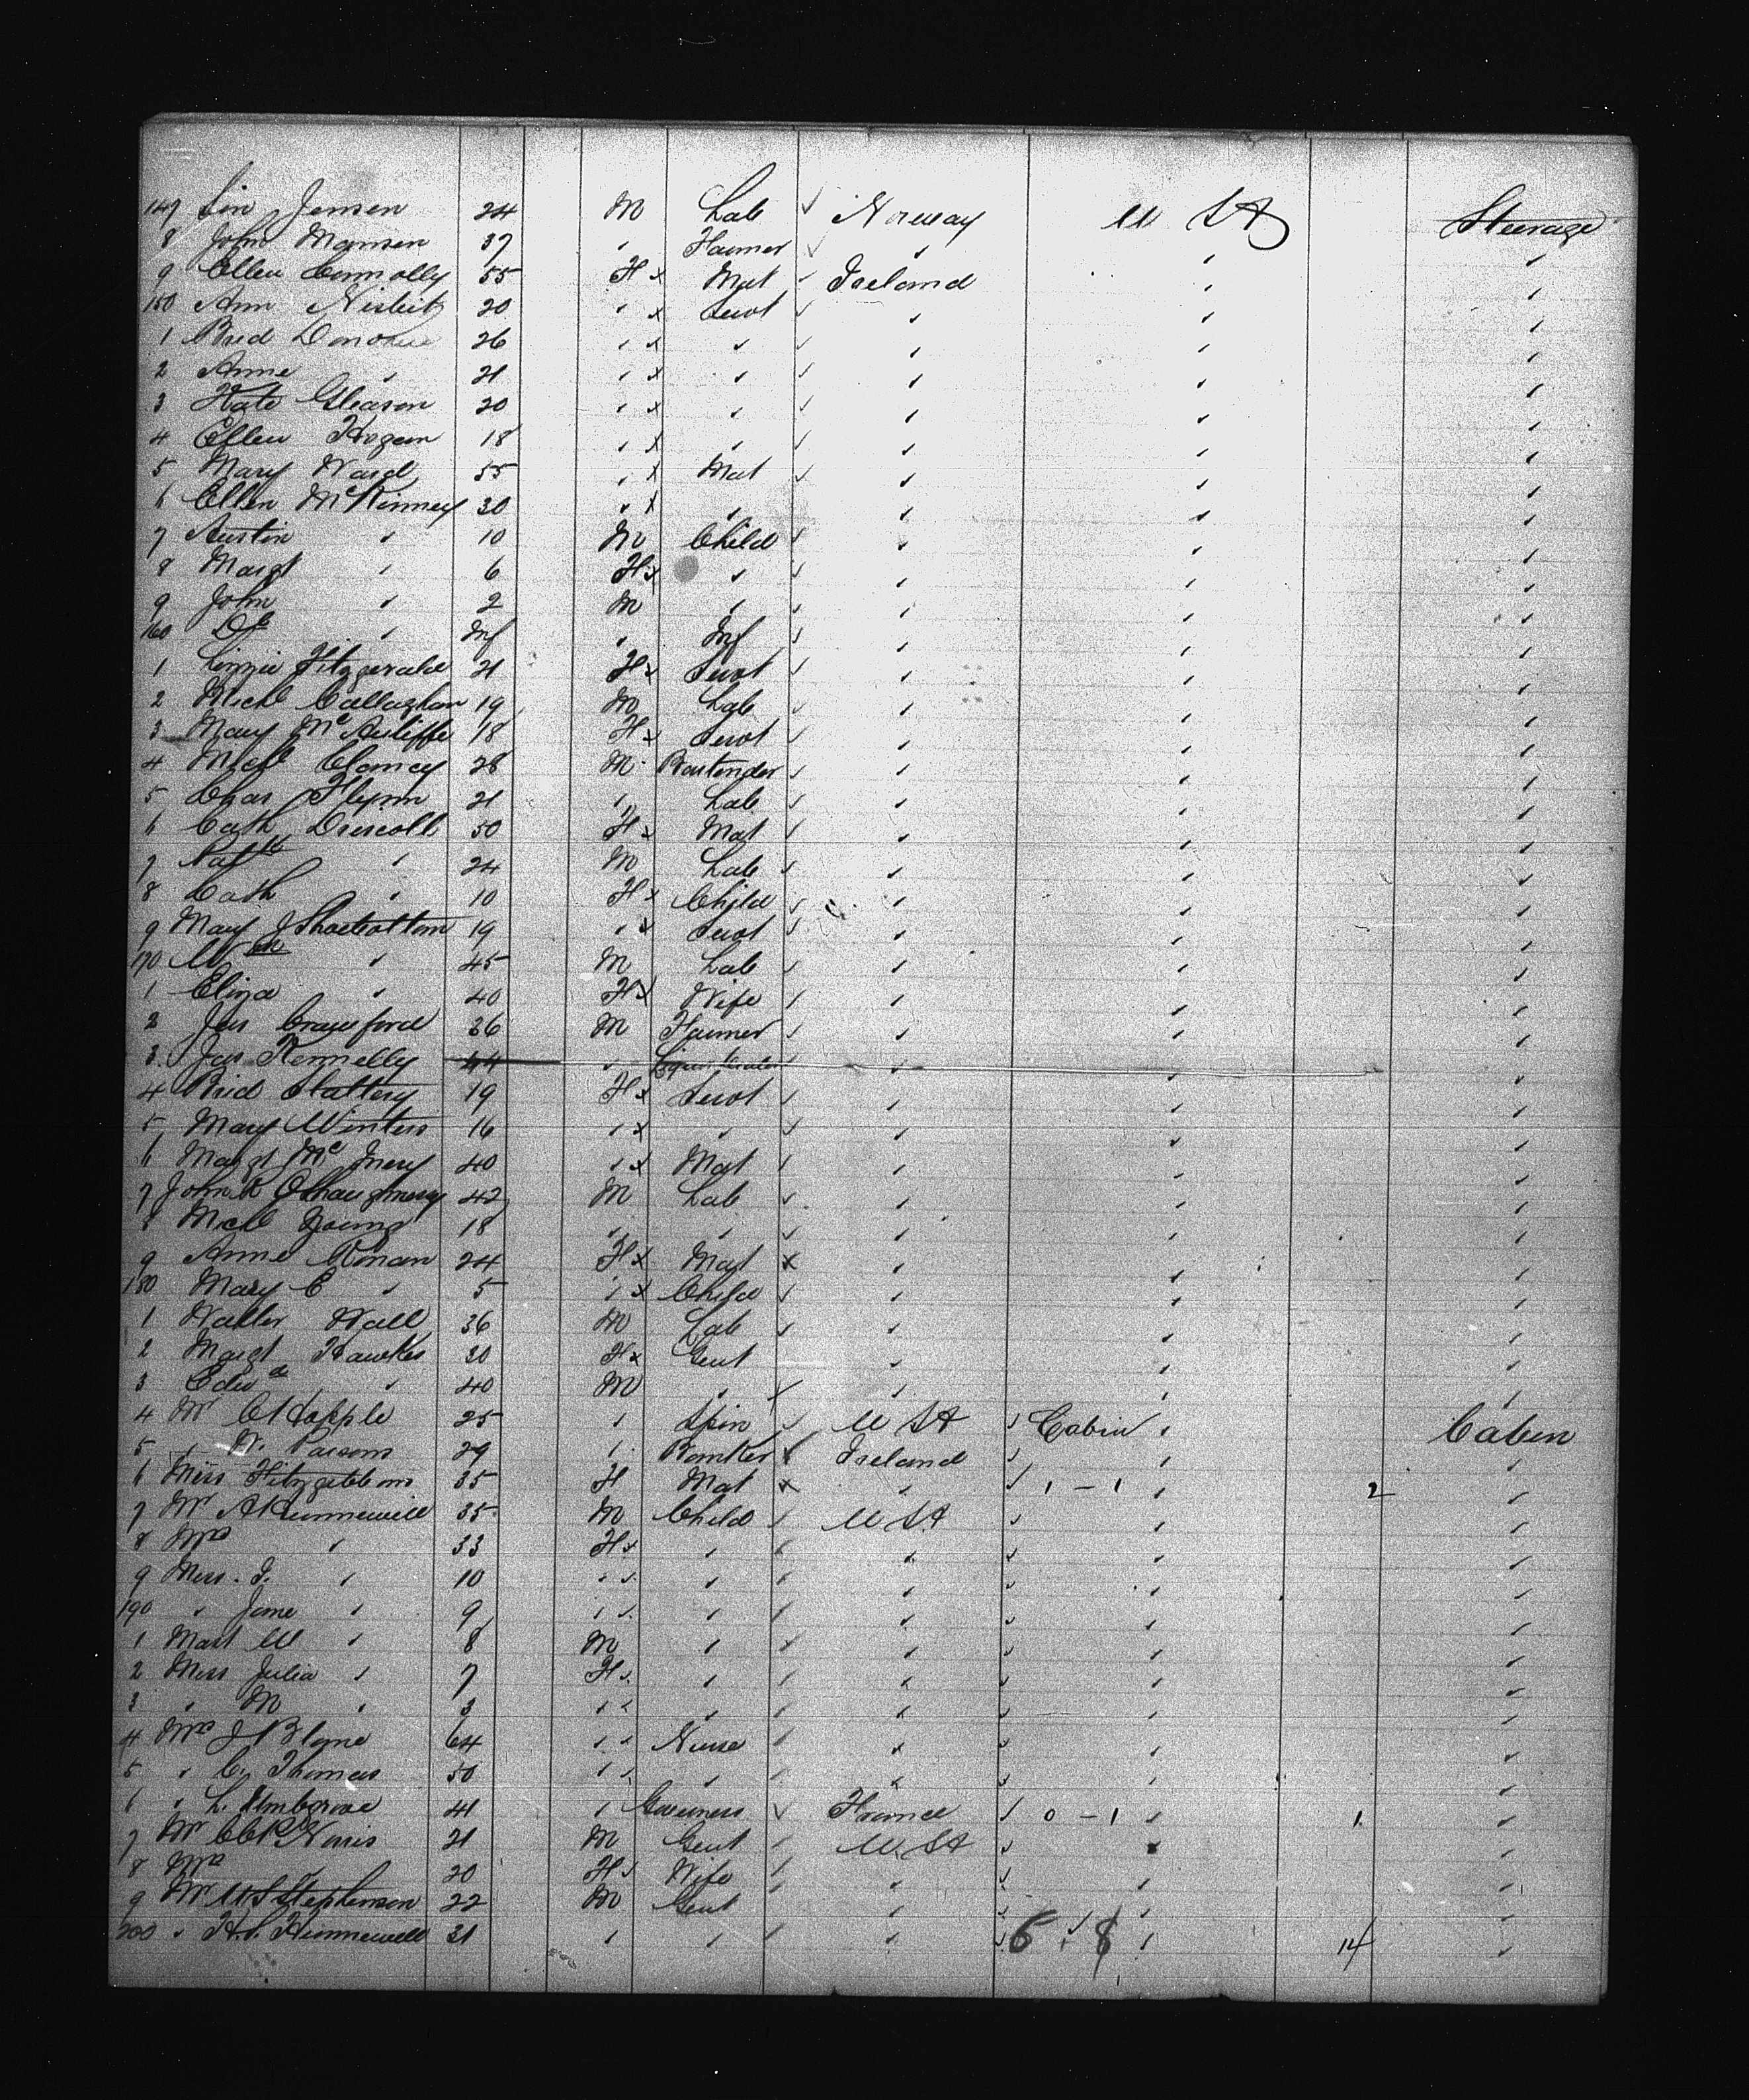 147 Jensen 24 M Lab ✓ Norway U S A Steerage
8 John Mansen 37 " Farmer ✓ " " "
9 Ellen Connolly 55 F x Mat ✓ Ireland " "
150 Ann Nisbit 20 " x Servt ✓ " " "
1 Brid Donohue 26 " x " ✓ " " "
2 Anne " 21 " x " ✓ " " "
3 Kate Gleason 20 " x " ✓ " " "
4 Ellen Hogan 18 " x " ✓ " " "
5 Mary Ward 55 " x Mat ✓ " " "
6 Ellen McKinney 30 " x " " " "
7 Austin " 10 M Child ✓ " " "
8 Margt " 6 F x " ✓ " " "
9 John " 2 M " ✓ " " "
160 " Inf " Inf ✓ " " "
1 Lizzie Fitzgerald 21 F x Servt ✓ " " "
2 Michl Callaghan 19 M Lab ✓ " " "
3 Mary McAuliffe 18 F x Servt ✓ " " "
4 Michl Clancy 28 M Bartender ✓ " " "
5 Chas Flynn 21 " Lab ✓ " " "
6 Cath Driscoll 50 F x Mat ✓ " " "
7 " 24 M Lab ✓ " " "
8 Cath " 10 F x Child ✓ " " "
9 Mary J Shoebottom 19 " x Servt ✓ " " "
170 Wm " 45 M Lab ✓ " " "
1 Eliza " 40 F x Wife ✓ " " "
2 Jas Crawford 36 M Farmer ✓ " " "
3 Jas Kennelly 44 " Liquor Dealer ✓ " " "
4 Brid Slattery 19 F x Servt ✓ " " "
5 Mary Winters 16 " x " ✓ " " "
6 Margt Mc Inery 40 " x Mat ✓ " " "
7 John R OShaughnessy 42 M Lab ✓ " " "
8 Michl Young 18 " " ✓ " " "
9 Anne Ronan 24 F x Mat x " " "
180 Mary E " 5 " x Child ✓ " " "
1 Walter Wall 36 M Lab ✓ " " "
2 Margt Hawkes 30 F x Gent " " "
3 Edwd " 40 M " ✓ " " "
4 Mr 25 " Spin ✓ U S A ✓ Cabin " Cabin
5 " W. Parsons 29 " Banker x Ireland ✓ " "
6 Miss Fitzgibbons 35 F Mat x " ✓ 1 - 1 " 2 "
7 Mr A Hunnewell 35 M Child ✓ U S A ✓ " "
8 Mrs " 33 F ✓ " ✓ " ✓ " "
9 Miss " 10 " ✓ " ✓ " ✓ " "
190 " Jane " 9 " ✓ " ✓ " ✓ " "
1 Mast W " 8 M " ✓ " ✓ " "
2 Miss Julia " 7 F ✓ " ✓ " ✓ " "
3 " M " 3 " ✓ " ✓ " ✓ " "
4 Mrs J 64 " ✓ Nurse ✓ " ✓ " "
5 " C. Thomas 50 " ✓ " ✓ " ✓ " "
6 " L. 41 " Governess ✓ France ✓ 0 - 1 " 1 "
7 Mr Norris 21 M Gent ✓ U S A ✓ " "
8 Mrs " 20 F ✓ Wife ✓ " ✓ " "
9 Mr Stephenson 22 M Gent " ✓ " "
200 " H.S. Hunnewell 31 " " ✓ " ✓ 6 - 8 " 14 "